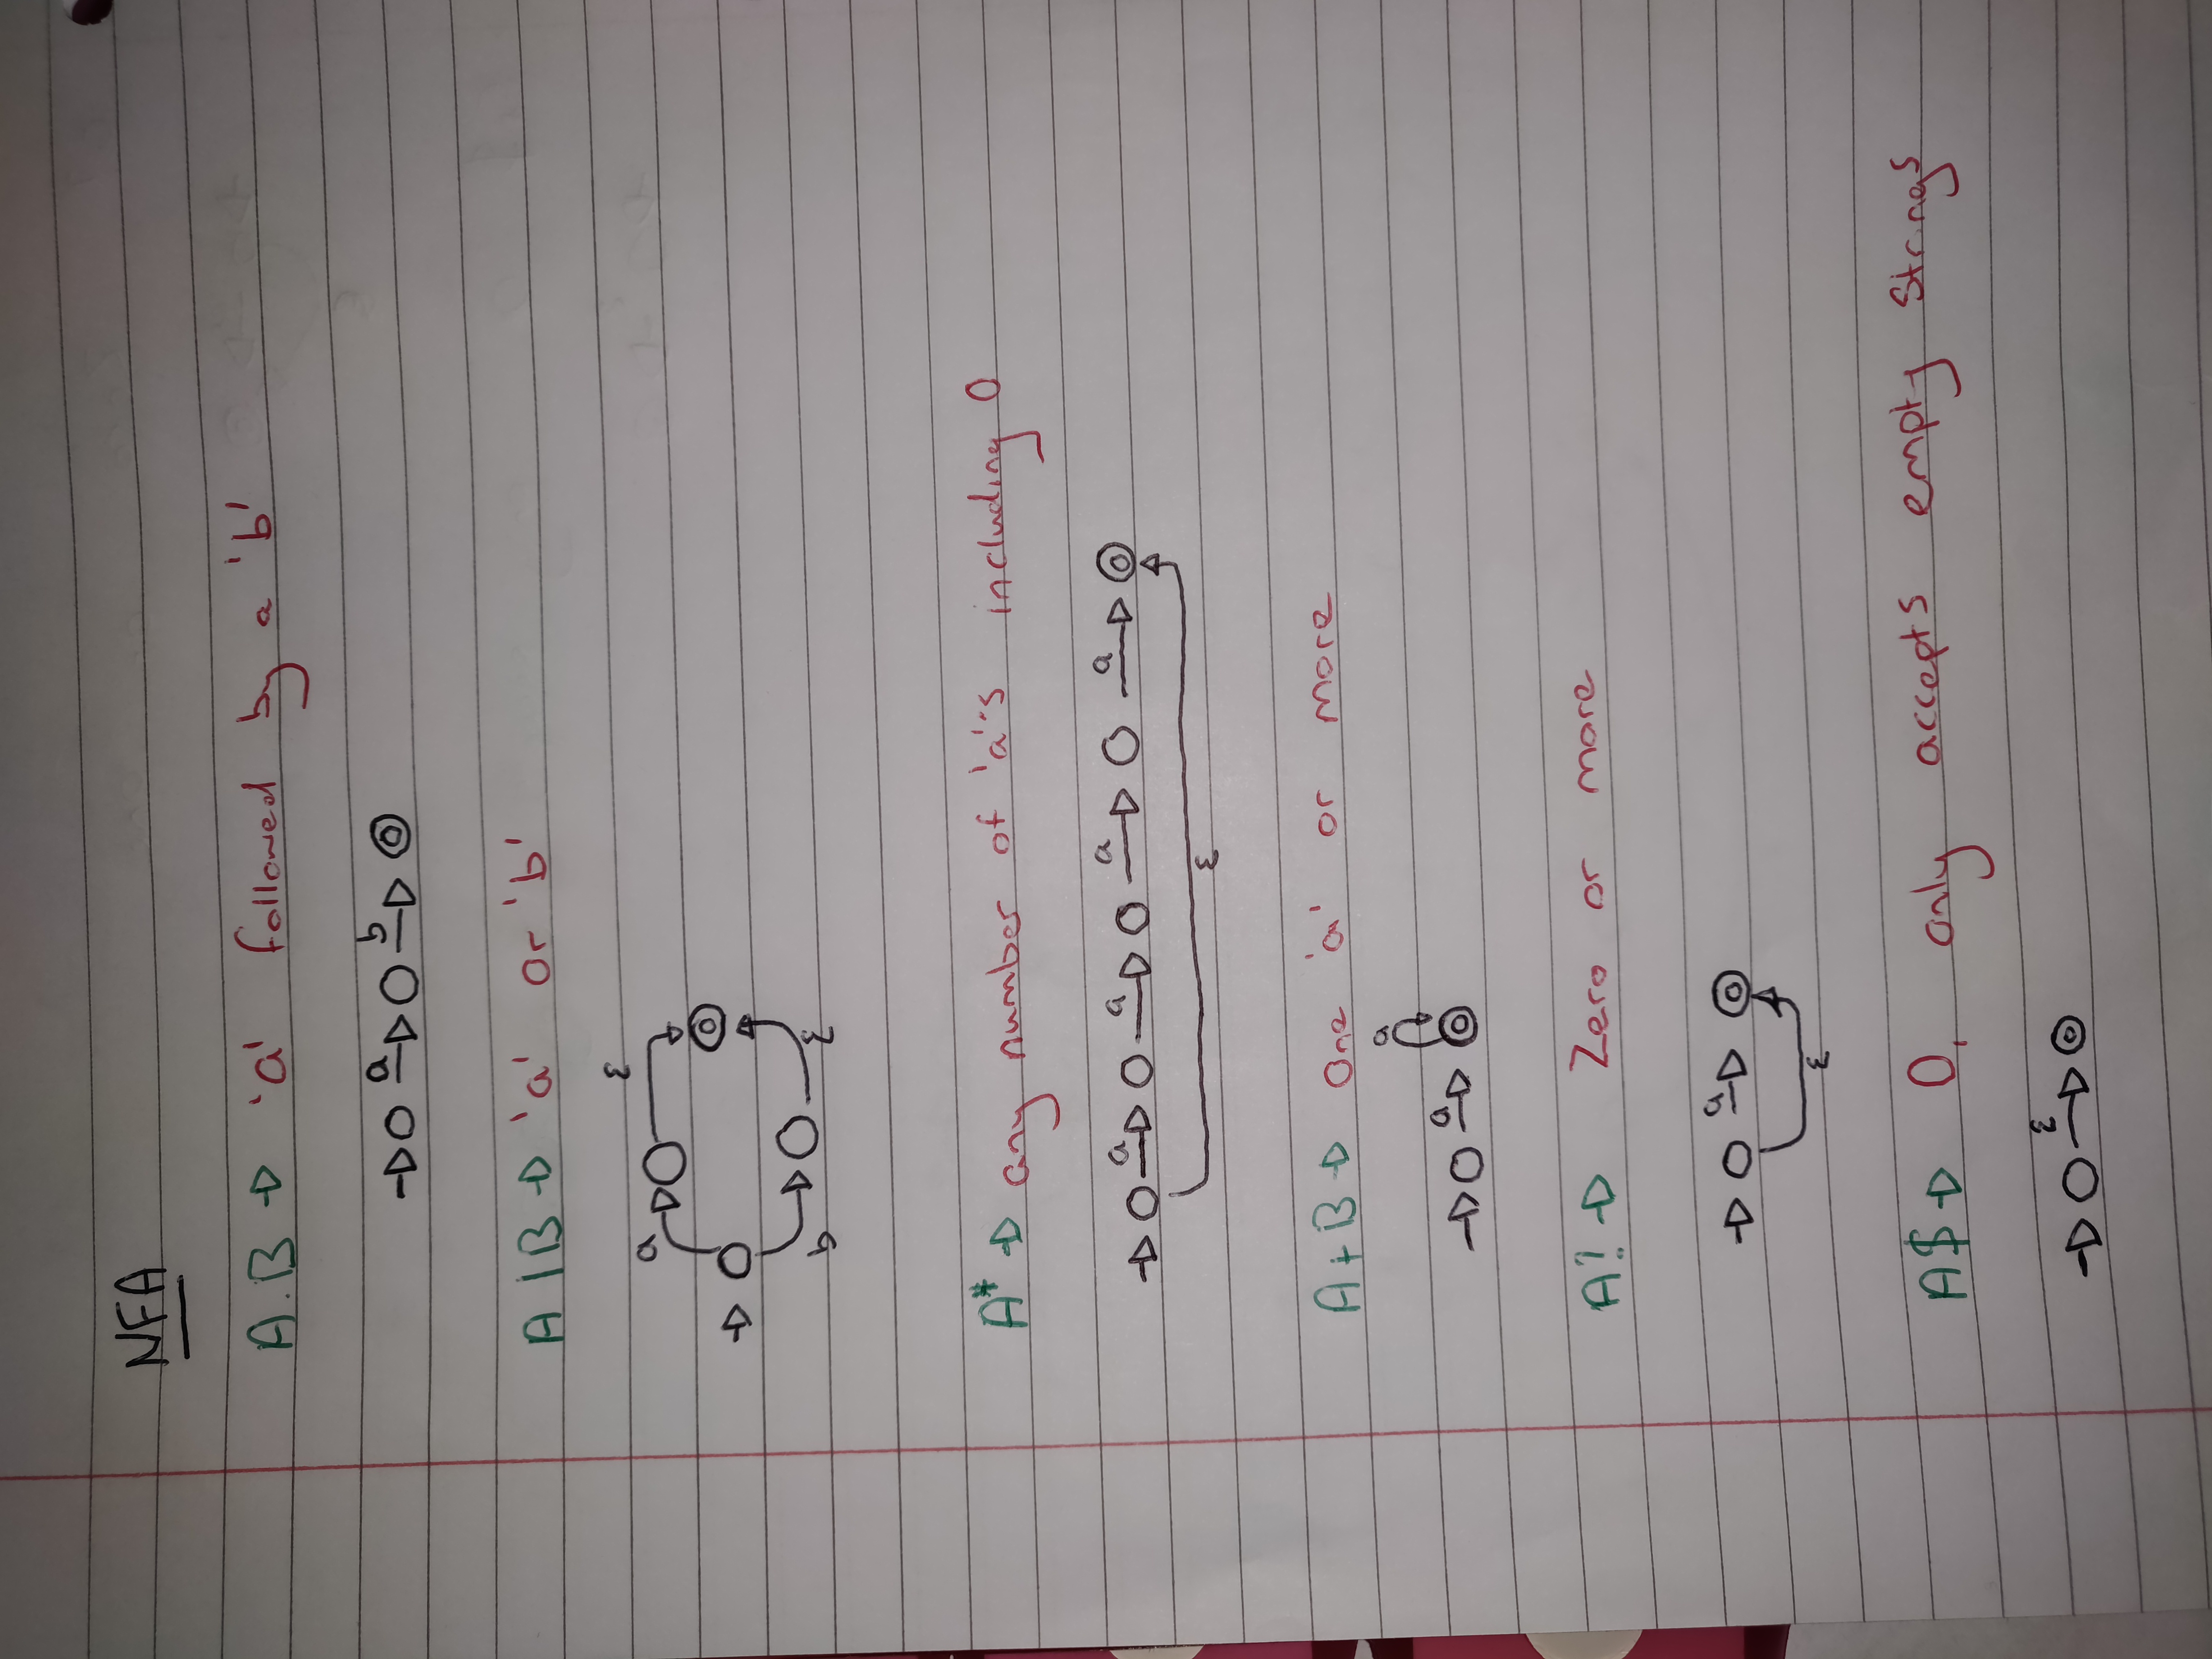 NFA
A.B → 'a' followed by a 'b'
a b
A|B → 'a' or 'b'
a ε
b ε
A* → any number of 'a's including 0
a a a a
ε
A+B → One 'a' or more
a
a
A? → Zero or more
a
ε
A$ → 0, only accepts empty strings
ε